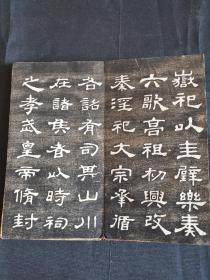 嶽祀以圭璧樂奏
六歌高祖初興改
秦淫祀大宗承循
各詔有司其山川
在諸侯者以時祠
之孝武皇帝脩封